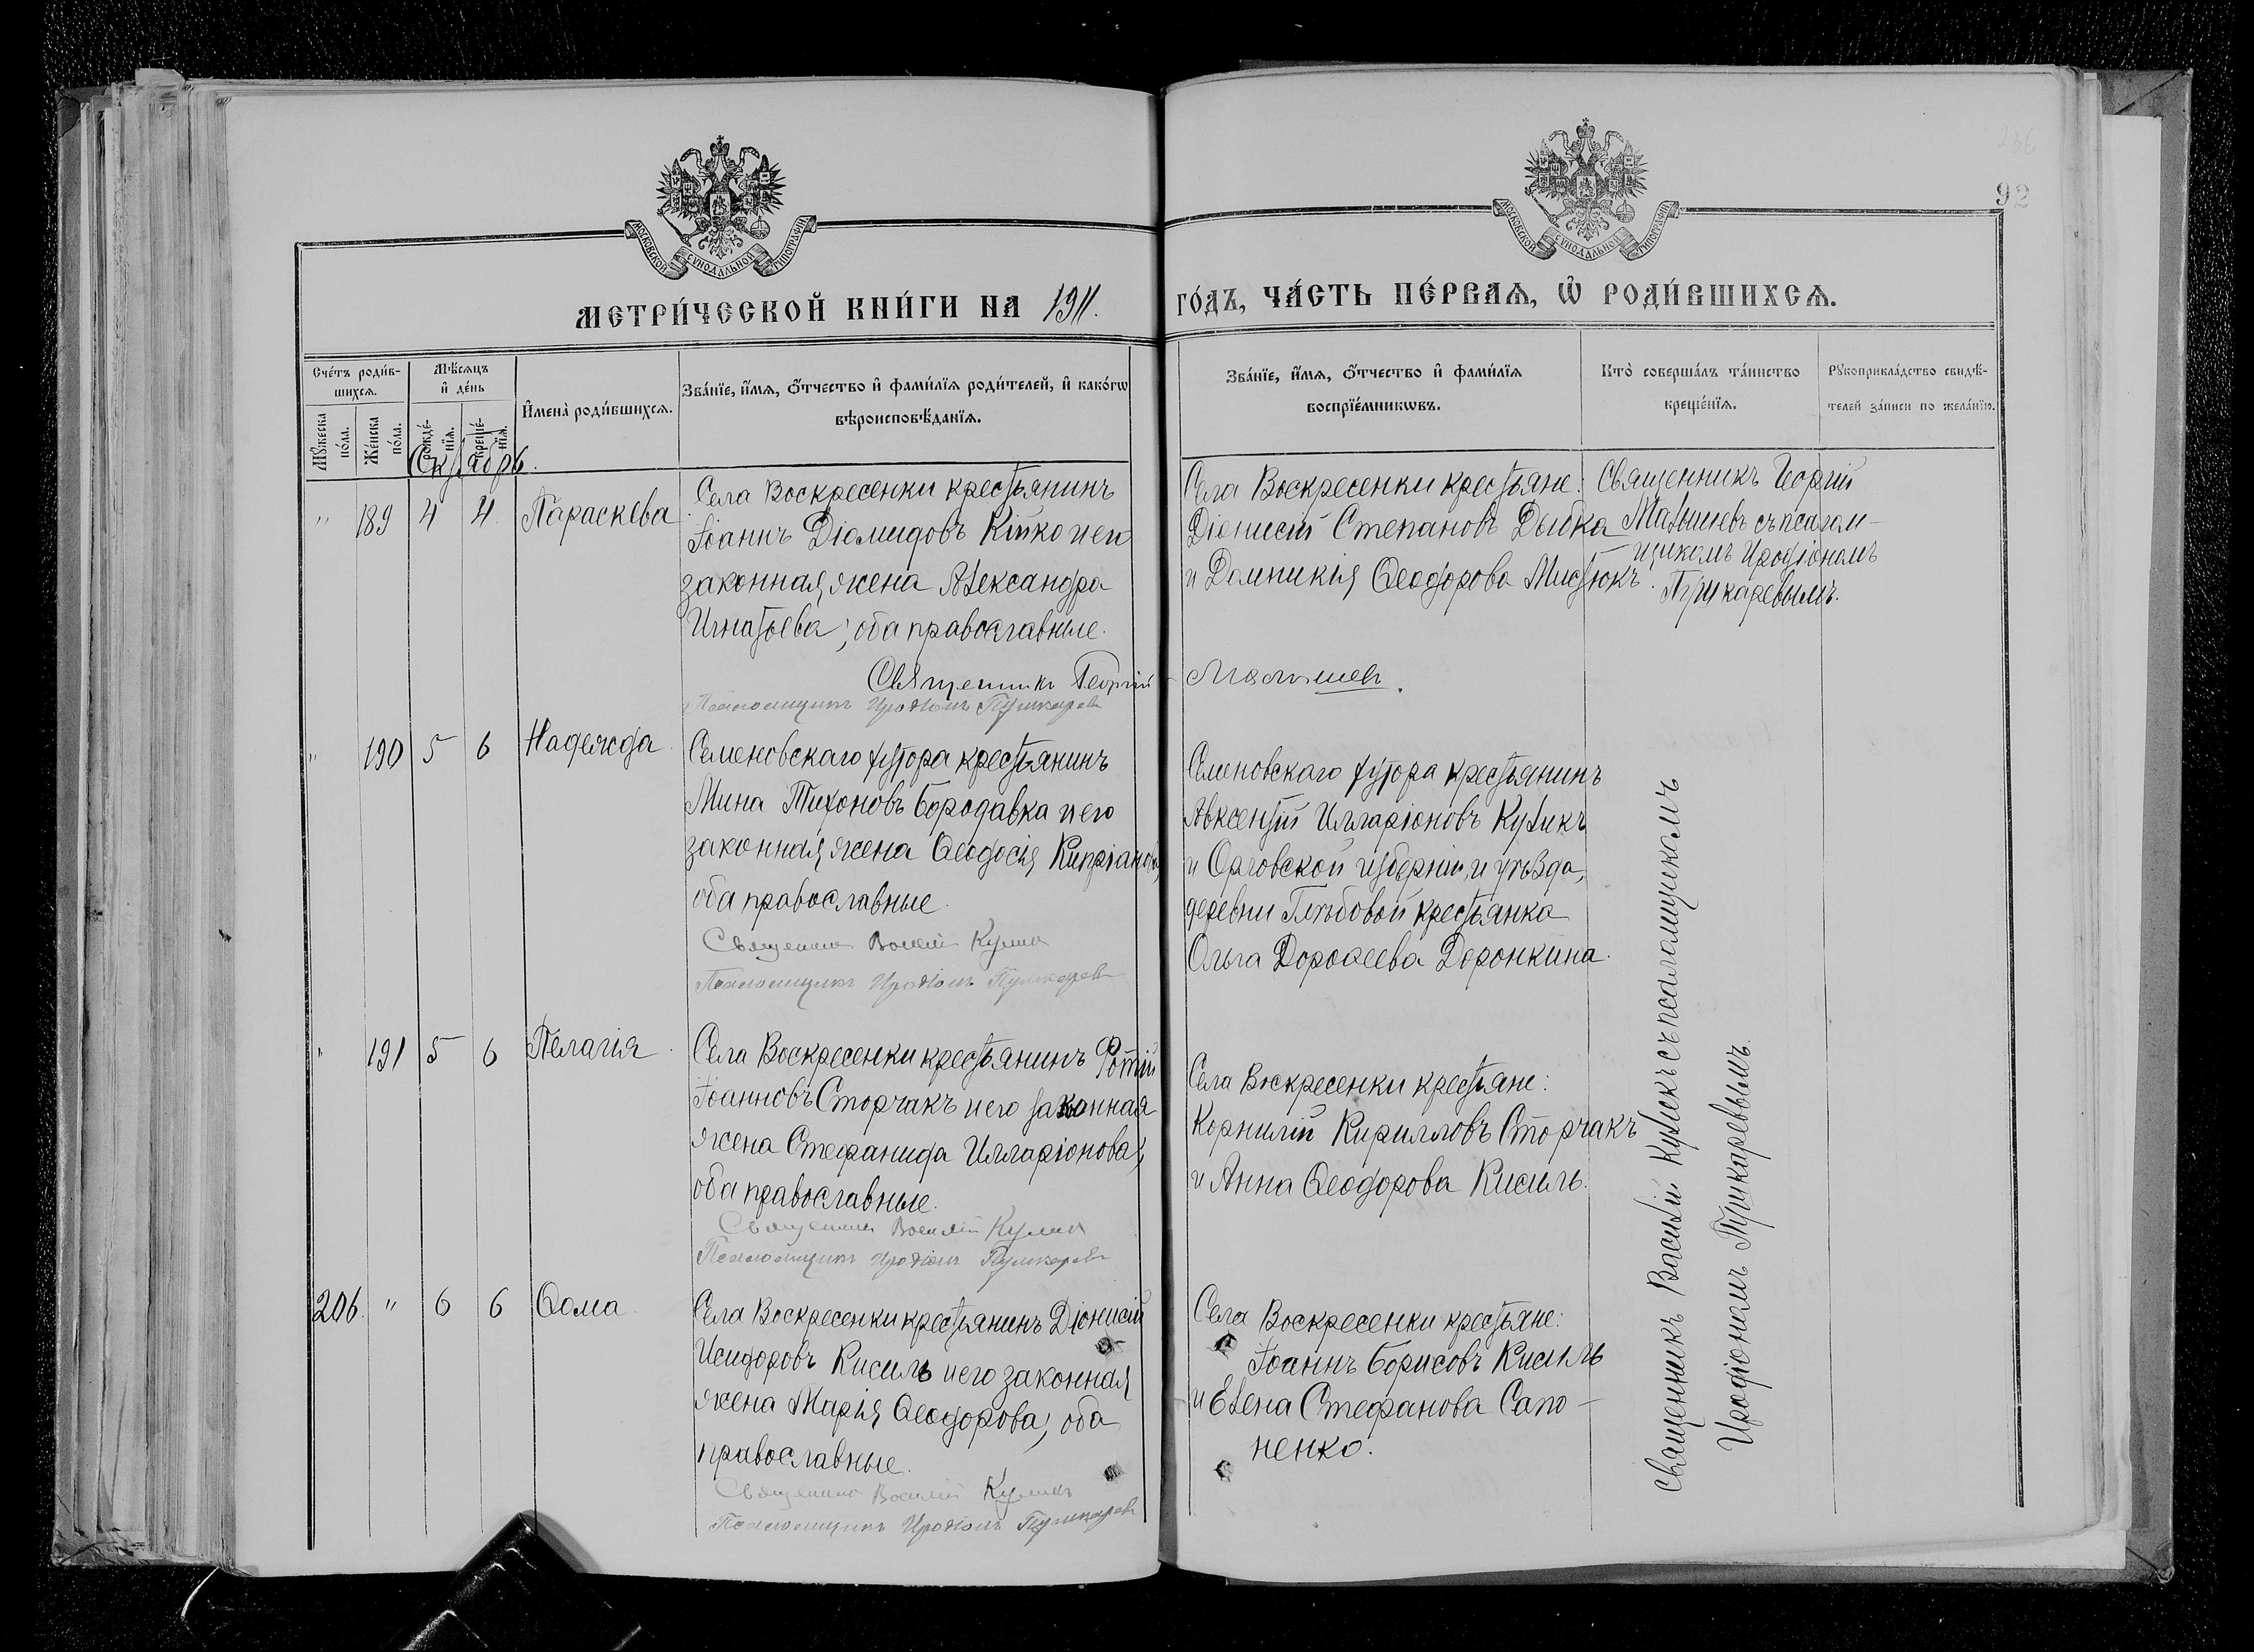 92
МОСКОВСКОЙ СѴНОДАЛЬНОЙ ТИПОГРАФІИ
МОСКОВСКОЙ СѴНОДАЛЬНОЙ ТИПОГРАФІИ
МЕТРИ́ЧЕСКОЙ КНИ́ГИ НА 1911.
ГО́ДЪ, ЧА́СТЬ ПЕ́РВАѦ, Ѡ҆ РОДИ́ВШИХСѦ.
Сче́тъ роди́в-
шихсѧ.
Мꙋ́жеска по́ла.
Же́нска по́ла.
Мѣ́сѧцъ
и҆ де́нь
рожде́-нїѧ.
креще́-нїѧ.
И҆мена̀ роди́вшихсѧ.
Зва́нїе, и҆́мѧ, ѻ҆́тчество и҆ фами́лїѧ роди́телей, и҆ како́гѡ
вѣроисповѣ́данїѧ.
Зва́нїе, и҆́мѧ, ѻ҆́тчество и҆ фами́лїѧ
воспрїе́мникѡвъ.
Кто̀ соверша́лъ та́инство
креще́нїѧ.
Рꙋкоприкла́дство свидѣ́-
телей за́писи по жела́нїю.
Октябрь.
" 189 4 4. Параскева
Села Воскресенки крестьянинъ
Іоаннъ Діомидовъ Кійко и его
законная жена Александра
Игнатьева; оба православные.
Священникъ Георгій Малышевъ.
Псаломщикъ Иродіонъ Пушкаревъ
Села Воскресенки крестьяне:
Діонисій Степановъ Дыбка
и Домникія Ѳеодорова Мистюкъ.
Священникъ Георгій
Малышевъ съ псалом-
щикомъ Иродіономъ
Пушкаревымъ.
" 190 5 6 Надежда
Семеновскаго хутора крестьянинъ
Мина Тихоновъ Бородавка и его
законная жена Ѳеодосія Кипріанова,
оба православные.
Священникъ Василій Куликъ
Псаломщикъ Иродіонъ Пушкаревъ
Семеновскаго хутора крестьянинъ
Авксентій Илларіоновъ Куликъ
и Орловской губерніи, и уѣзда,
деревни Глѣбовой крестьянка
Ольга Дороѳеева Доронкина.
" 191 5 6 Пелагія
Села Воскресенки крестьянинъ Фотій
Іоанновъ Сторчакъ и его законная
жена Стефанида Илларіонова;
оба православные.
Священникъ Василій Куликъ
Псаломщикъ Иродіонъ Пушкаревъ
Села Воскресенки крестьяне:
Корнилій Кирилловъ Сторчакъ
и Анна Ѳеодорова Кисиль.
206. " 6 6 Ѳома
Села Воскресенки крестьянинъ Діонисій
Исидоровъ Кисиль и его законная
жена Марія Ѳеодорова; оба
православные.
Священникъ Василій Куликъ
Псаломщикъ Иродіонъ Пушкаревъ
Села Воскресенки крестьяне:
Іоаннъ Борисовъ Кисиль
и Елена Стефанова Сапо-
ненко.
Священникъ Василій Куликъ съ псаломщикомъ
Иродіономъ Пушкаревымъ.